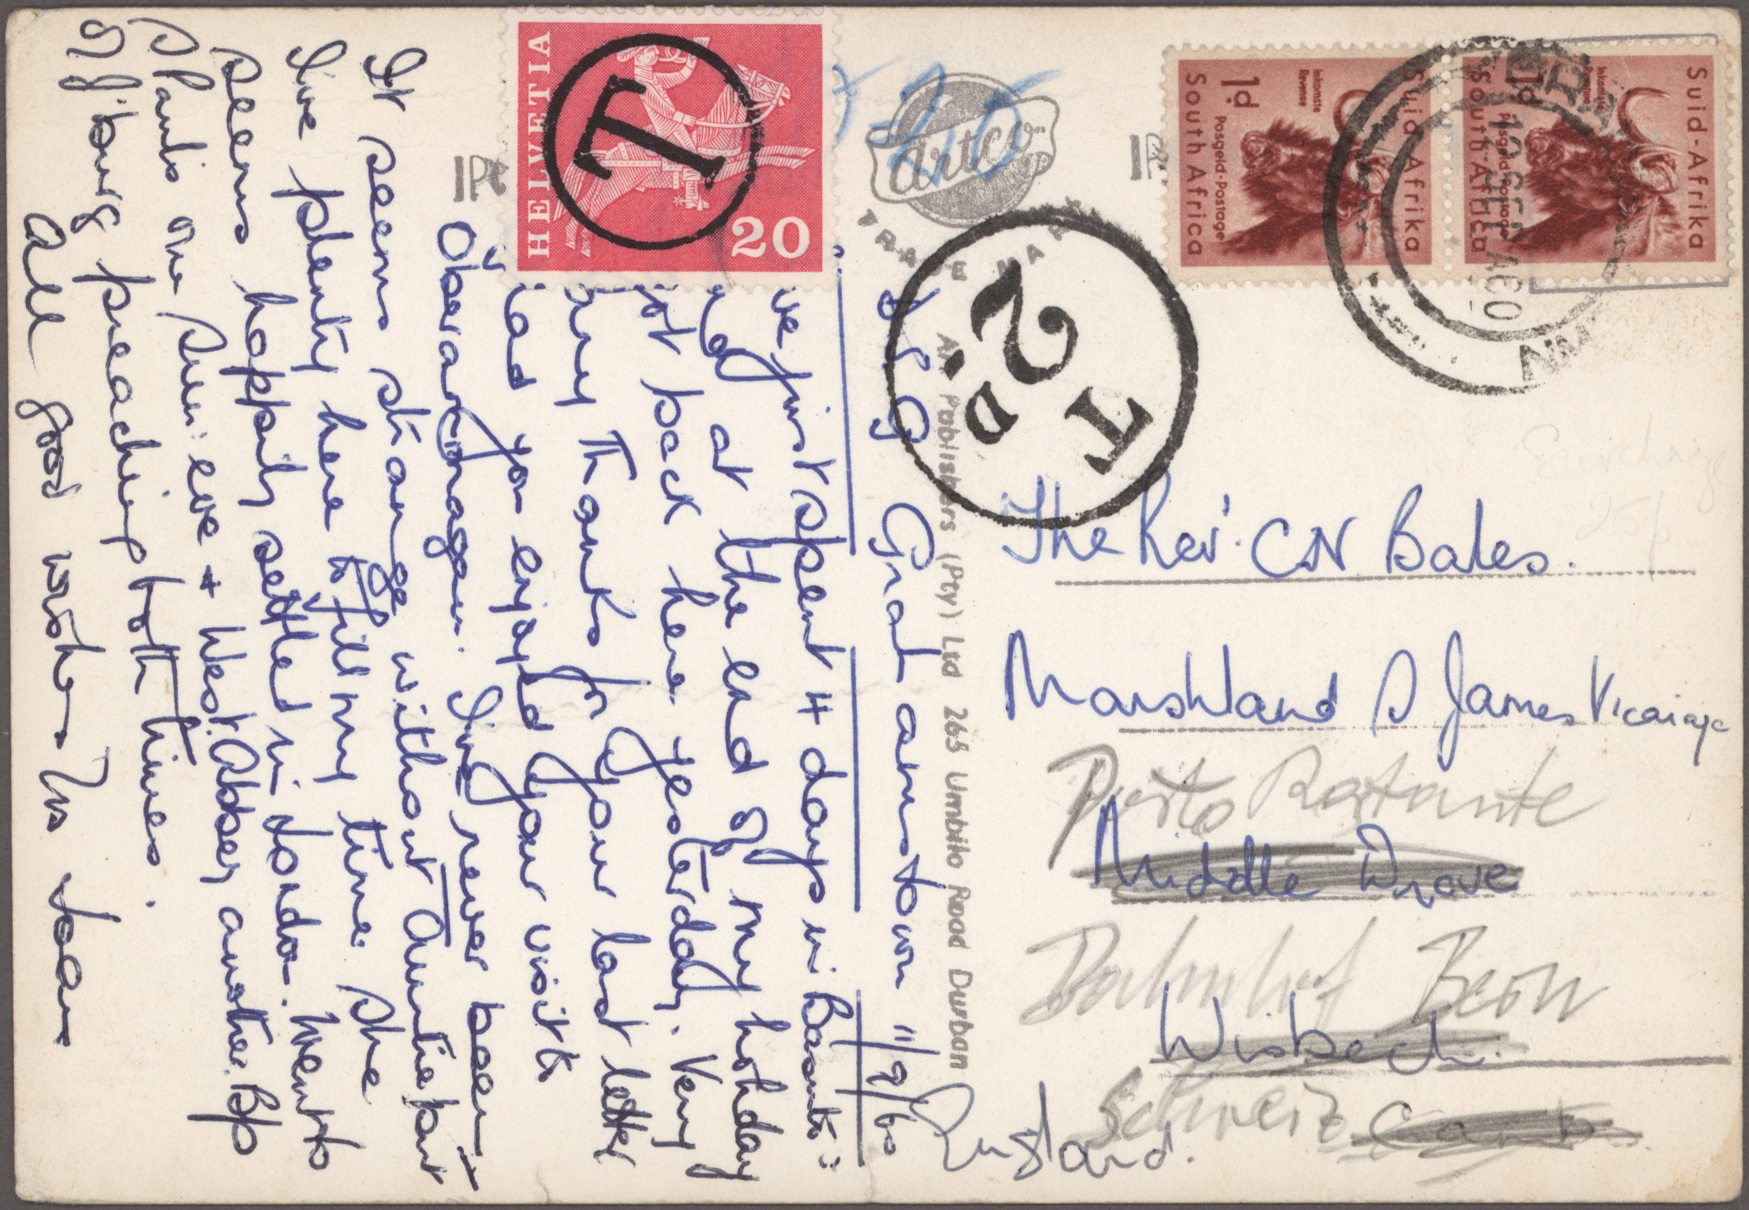 HELVETIA
20
T
artco
TRADE MARK
T
2D.
Suid-Afrika
Inkomste
Revenue
1d
Posgeld-Postage
South Africa
Suid-Afrika
Inkomste
Revenue
1d
Posgeld-Postage
South Africa
12 SEP 1960
Art Publishers (Pty) Ltd 265 Umbilo Road Durban
Grahamstown 11/9/60
ve just spent 4 days in
at the end of my holiday
back here yesterday. Very
Thanks for your last letter
you enjoyed your visit to
Oberammergau. I've never been.
It seems strange without Auntie but
I've plenty here to fill my time. She
seems happily settled in London. Went to
S Paul's one Sun: eve & West. Abbey another. Bp
of J'burg preaching both times.
All good wishes
The Rev. CN Bales.
Marshland S James Vicarage
Middle Drove
Wisbech.
Cambs.
England.
Posto Restante
Bahnhof Bern
Schweiz